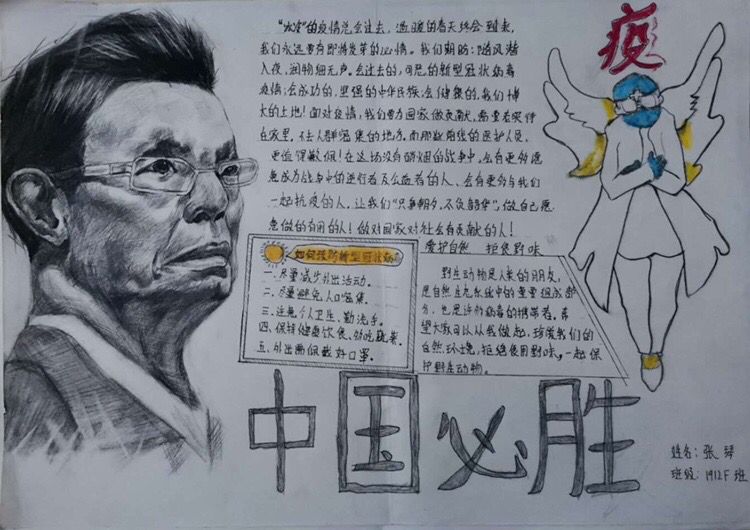 “冰冷”的疫情总会过去，温暖的春天终会到来，
我们永远要有即将发芽的心情。我们期盼：随风潜
入夜，润物细无声。会过去的，可恶的新型冠状病毒
疫情；会成功的，坚强的中华民族；会健康的，我们博
大的土地！面对疫情，我们要为国家做贡献，需要去呆待
在家里，不去人群密集的地方，而那些前线的医护人员，
更值得敬佩！在这场没有硝烟的战争中，会有更多愿
意成为战争中的逆行者及么血者的人、会有更多与我们
一起抗疫的人，让我们“只争朝夕，不负韶华”，做自己愿
意做的有用的人！做对国家对社会有贡献的人！
疫
如何预防新型冠状病
一、尽量减少外出活动。
二、尽量避免人口密集。
三、注意个人卫生、勤洗手。
四、保持健康饮食、多吃蔬菜。
五、外出需佩戴好口罩。
爱护自然 拒食野味
野生动物是人类的朋友，
是自然生态系统中的重要组成部
分，也是许多病毒的携带者，希
望大家可以从我做起，珍爱我们的
自然环境，拒绝食用野味，一起保
护野生动物。
中国必胜
姓名：张琴
班级：1912F班